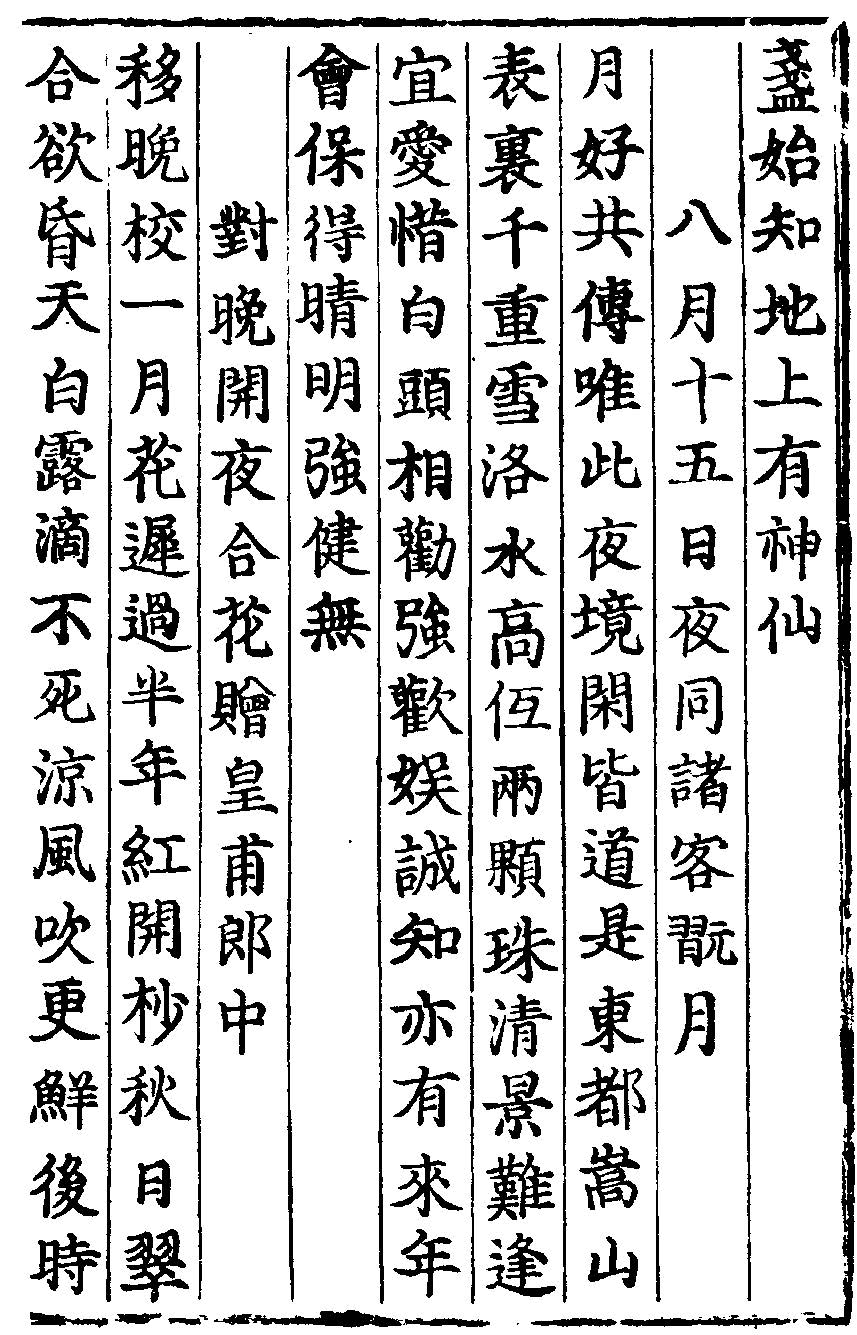 盞始知地上有神仙
八月十五日夜同諸客翫月
月好共傳唯此夜境閑皆道是東都嵩山
表裏千重雪洛水高伍兩顆珠清景難逢
宜愛惜白頭相勸強歡娱誠知亦有來年
會保得晴明強健無
對晚開夜合花贈皇甫郎中
移晚校一月花遲過半年紅開杪秋日翠
合欲昏天白露滴不死涼風吹更鮮後時